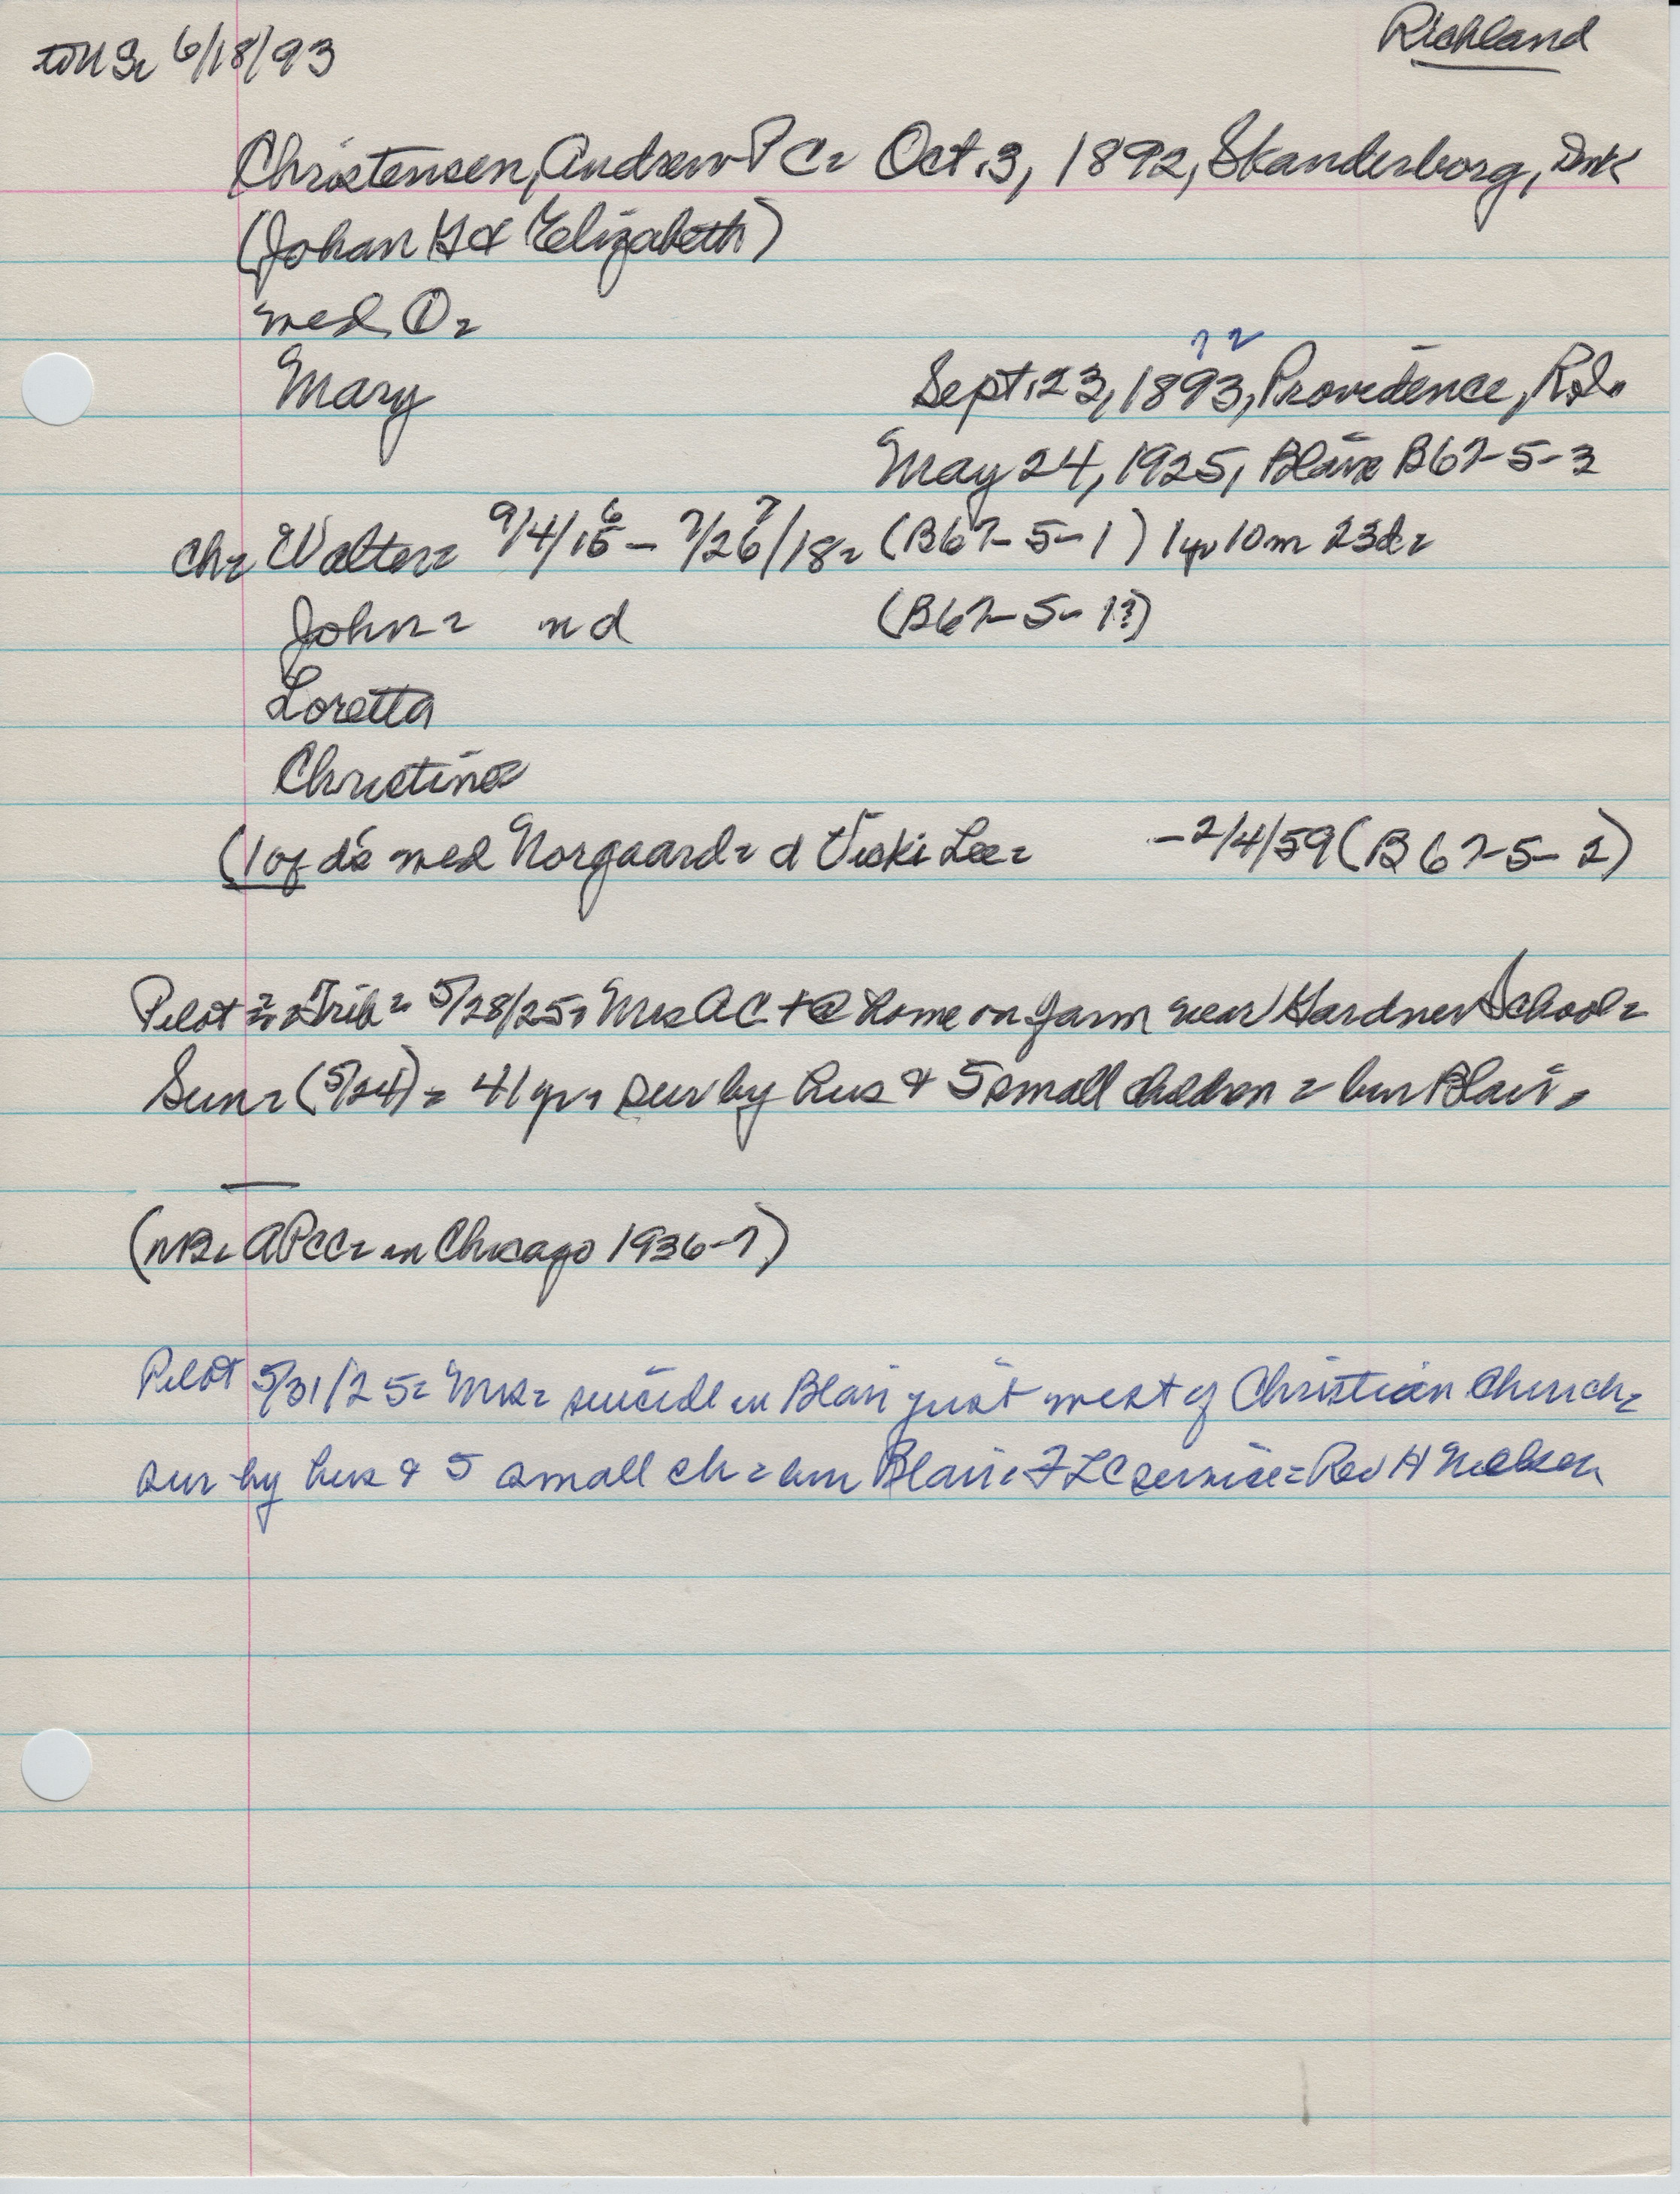 6/18/93
Richland
Christensen, Andrew P C= Oct. 3, 1892, Skanderborg, Dmk
(Johan H & Elizabeth)
med ①=
? 2
Mary Sept. 23, 1893, Providence, R.I.
May 24, 1925, Blair B67-5-3
ch= Walter= 9/4/16 - 7/26/18= (B67-5-1) 1yr 10m 23d=
John= nd (B67-5-1?)
Loretta
Christine
(1 of d's med Norgaard= d Vicki Lee= -2/4/59 (B67-5-2)
Pilot = Trib= 5/28/25= Mrs AC + @ home on farm near Gardner School=
Sun= (5/24)= 41 yr= sur by hus & 5 small children = bur Blair.
(NB= APCC= in Chicago 1936-7)
Pilot 5/31/25= Mrs= suicide in Blair just west of Christian Church=
sur by hus & 5 small ch= bur Blair= FLC service= Rev H Nielsen